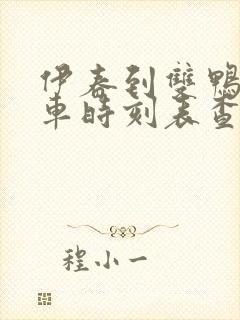 伊春到雙鴨
車時刻表查
程小一